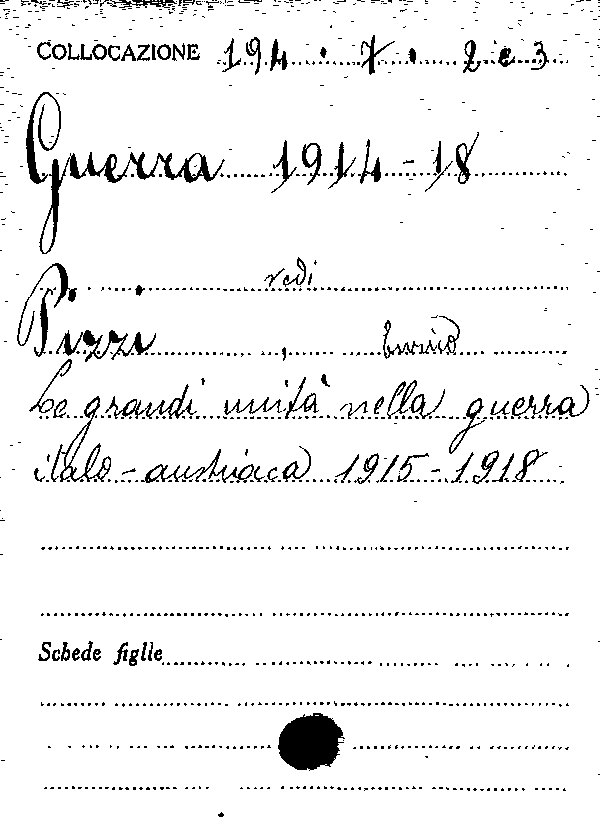 COLLOCAZIONE 194 . 7 . 2 e 3
Guerra 1914-18
vedi
Pizzi ,
Le grandi unità nella guerra
italo-austriaca 1915-1918
Schede figlie